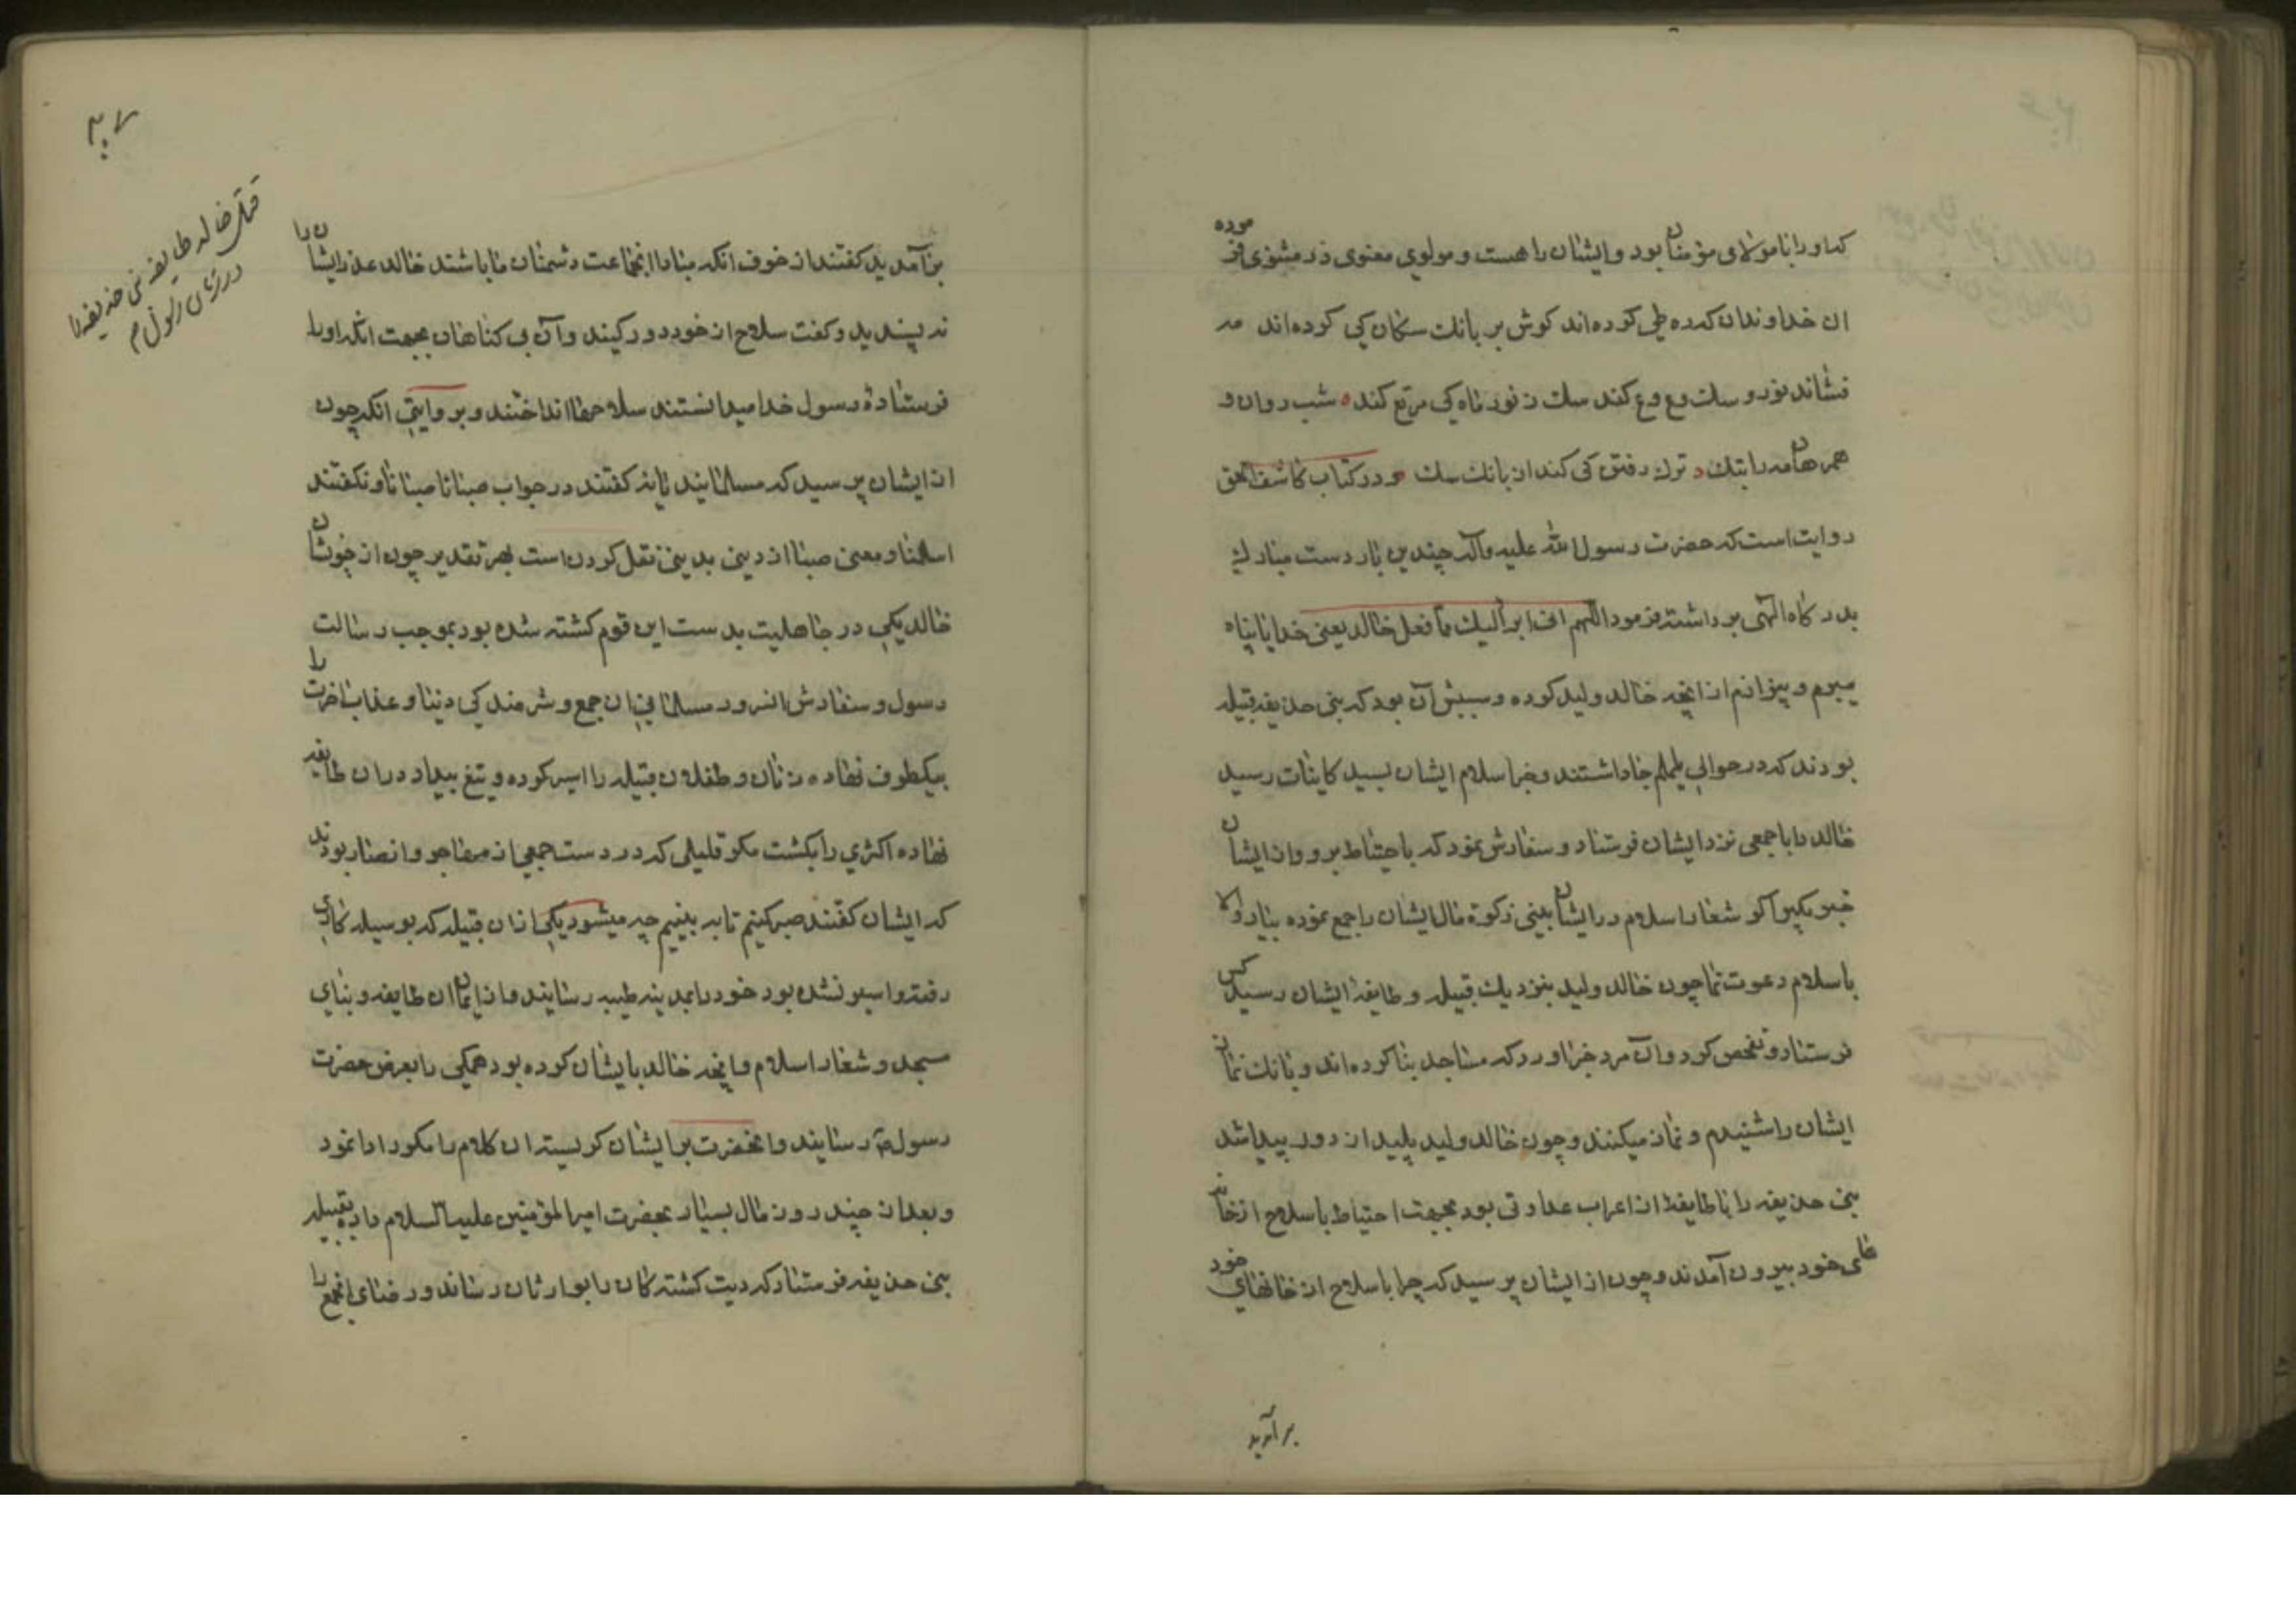 که او را با مولای مؤمنان بود و ایشان را هست و مولوی معنوی در مثنوی فرموده
ان خداوندان که ره طی کرده‌اند کوش بر بانک سکان کی کرده‌اند مه
فشاند نور و سک وع وع کند سک ز نور ماه کی مرتع کند ه شب روان و
همرهان مه را بتک ه ترک رفتن کی کنند از بانک سک و در کتاب کاشف الحق
روایت است که حضرت رسول الله علیه وآله چندین بار دست مبارک
بدرکاه الهی برداشته فرمود اللهم انی ابرأ الیک مما فعل خالد یعنی خدایا پناه
میبرم و بیزارم از انچه خالد ولید کرده و سببش آن بود که بنی حذیفه قبیله
بودند که در حوالی یلملم جا داشتند و خبر اسلام ایشان بسید کاینات رسید
خالد را با جمعی نزد ایشان فرستاد و سفارش نمود که باحتیاط برو و از ایشان
خبر بکیر اکر شعار اسلام در ایشان بینی زکوة مال ایشان را جمع نموده بیار والا
باسلام دعوت نما چون خالد ولید بنزدیک قبیله و طایفه ایشان رسید کس
فرستاد و تفحص کرد و آن مرد خبر اورد که مساجد بنا کرده‌اند و بانک نماز
ایشان را شنیدم و نماز میکنند و چون خالد ولید پلید از دور پیدا شد
بنی حذیفه را با طایفهٔ از اعراب عداوتی بود بجهت احتیاط با سلاح از خانه
های خود بیرون آمدند و چون از ایشان پرسید که چرا با سلاح از خانهای خود
برآمدید
۳۰۷
قتل خالد طایفه بنی حذیفه را
در زمان رسول م
برآمدید کفتند از خوف انکه مبادا انجماعت دشمنان ما باشند خالد عذر ایشان را
نه پسندید و کفت سلاح از خود دور کنید و آن بی کناهان بجهت انکه او را
فرستادهٔ رسول خدا میدانستند سلاحها انداختند و بروایتی انکه چون
از ایشان پرسید که مسلمانید یا نه کفتند در جواب صبانا صبانا و نکفتند
اسلمنا و معنی صبانا از دینی بدینی نقل کردن است بهر تقدیر چون از خویشان
خالد یکی در جاهلیت بدست این قوم کشته شده بود بموجب رسالت
رسول و سفارش انسرور مسلمانی ان جمع و شرمندکی دنیا و عذاب اخرت را
بیکطرف نهاده زنان و طفلان قبیله را اسیر کرده و تیغ بیداد در ان طایفه
نهاده اکثری را بکشت مکر قلیلی که در دست جمعی از مهاجر و انصار بودند
که ایشان کفتند صبر کنیم تا به بینیم چه میشود یکی از ان قبیله که بوسیله کاری
رفته و اسیر نشده بود خود را بمدینه طیبه رسانید و از ایمان ان طایفه و بنای
مسجد و شعار اسلام و انچه خالد با یشان کرده بود همکی را بعرض حضرت
رسول ص رسانید و انحضرت بر ایشان کریسته ان کلام را مکرر ادا نمود
و بعد از چند روز مال بسیار بحضرت امیر المؤمنین علیه السلام داده بقبیله
بنی حذیفه فرستاد که دیت کشته کان را بوارثان رساند و رضای انجمع را